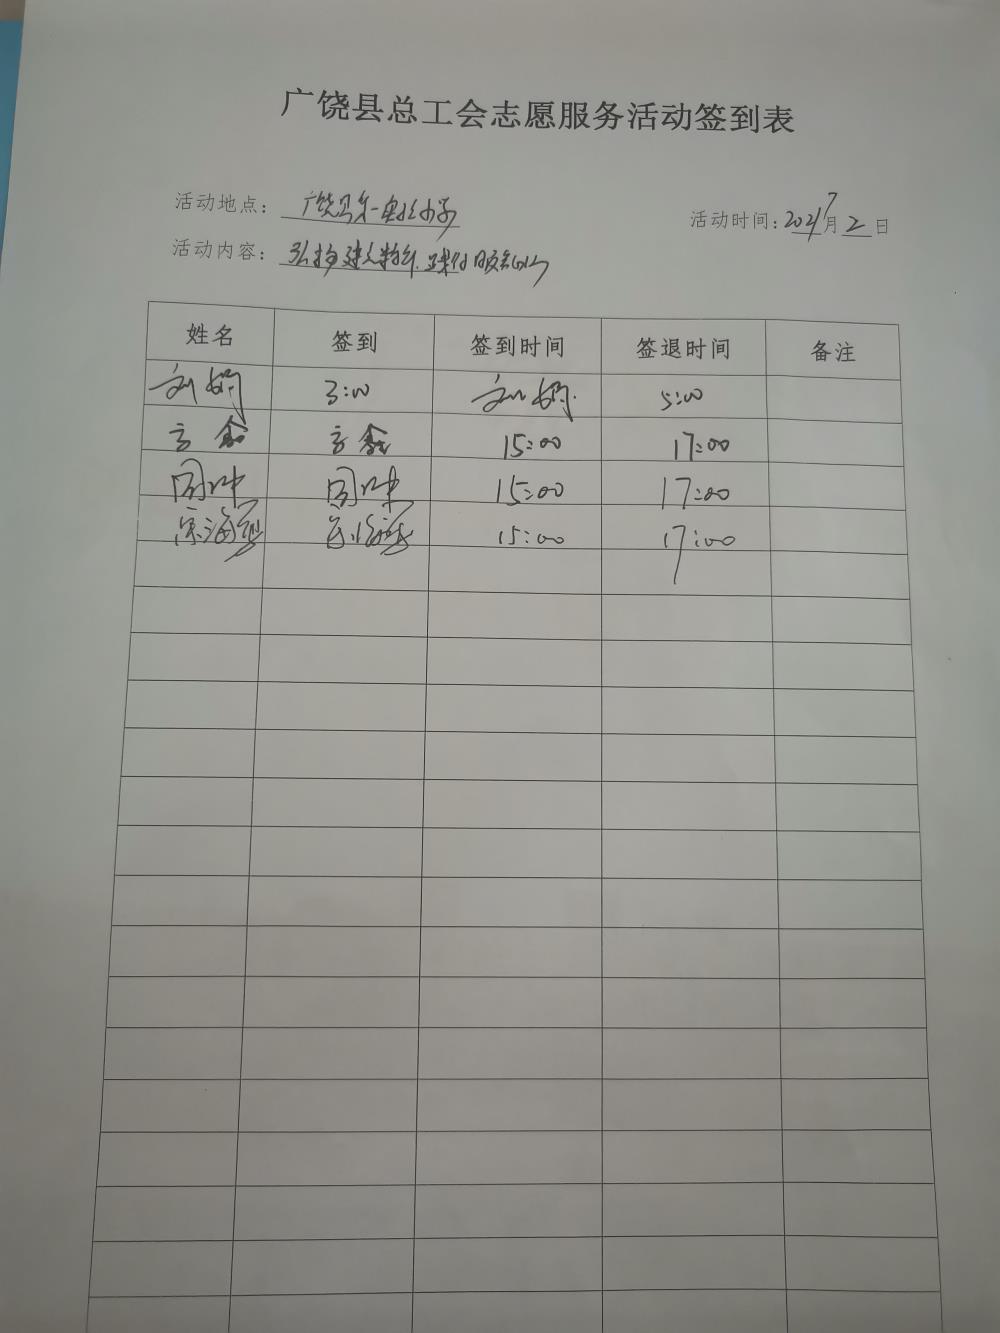 广饶县总工会志愿服务活动签到表
活动地点： 广饶县第一实验小学
活动时间: 2021 7月2日
活动内容： 弘扬建党精神
姓名 签到 签到时间 签退时间 备注
刘娟 3:00 刘娟 5:00
15:00 17:00
周冲 周冲 15:00 17:00
宋海燕 宋海燕 15:00 17:00